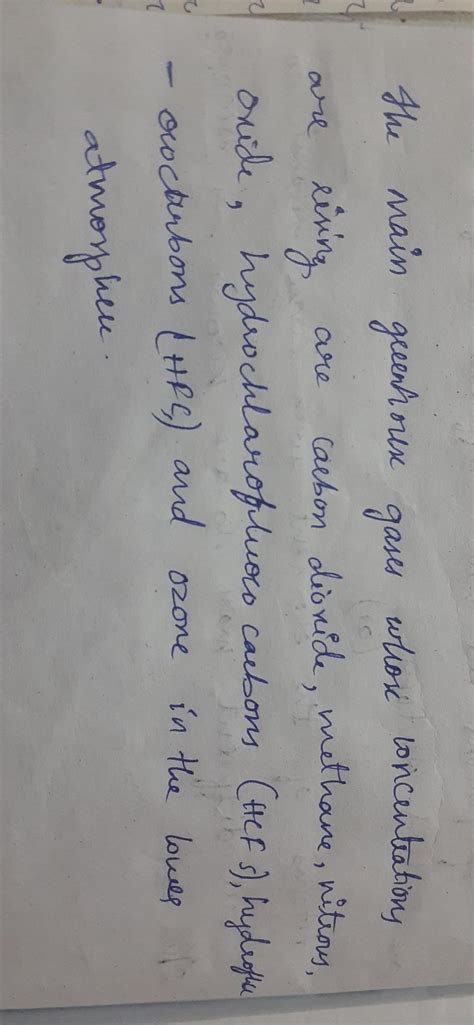 The main greenhouse gases whose concentrations
are rising, are carbon dioxide, methane, nitrous,
oxide, hydrochlarofluoro carbons (HCFS), hydroflu
- orocarbons (HFC,) and ozone in the lower
atmosphere.